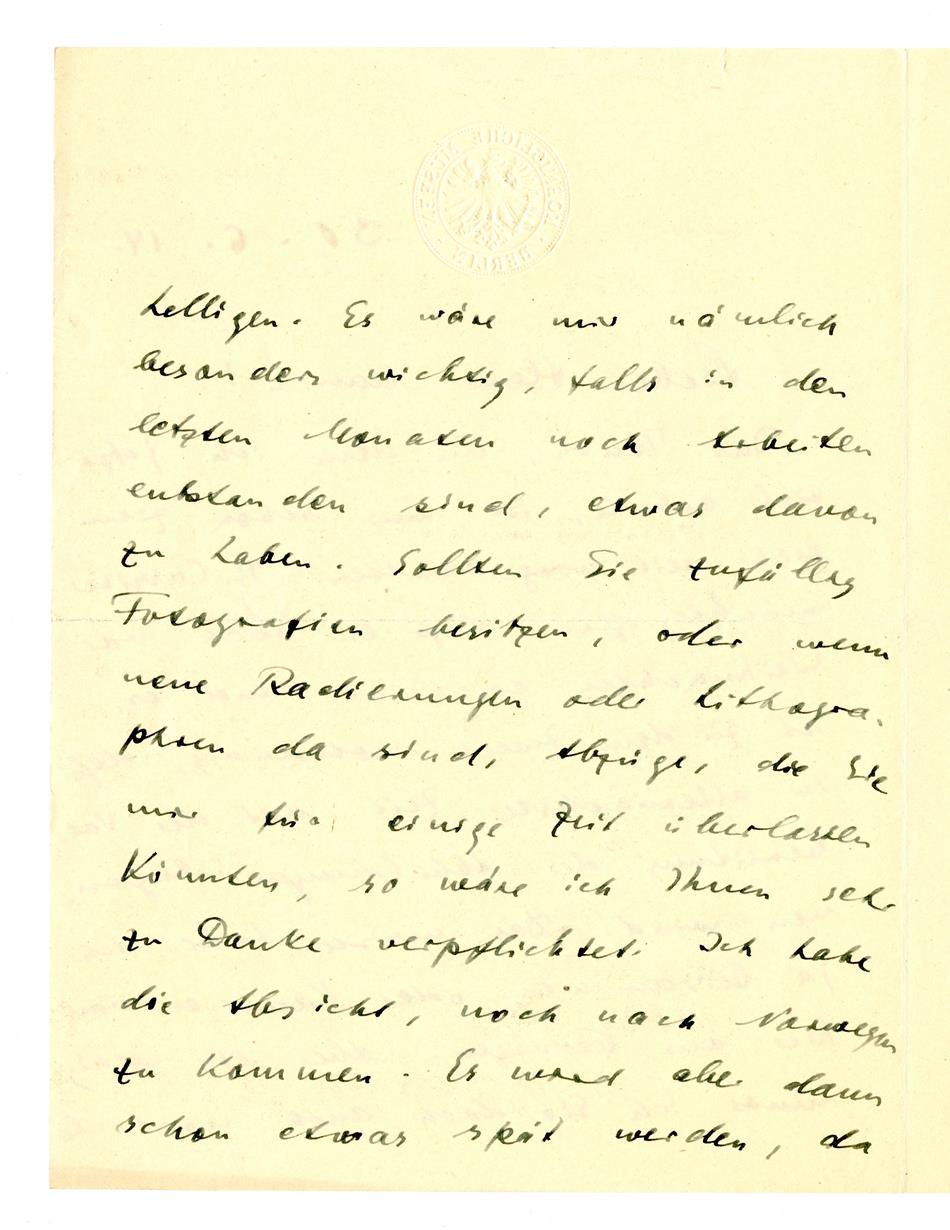 helligen. Es wäre mir nämlich
besonders wichtig, falls in den
letzten Monaten noch Arbeiten
entstanden sind, etwas davon
zu haben. Sollten Sie zufällig
Fotografien besitzen, oder wenn
neue Radierungen oder Lithogra-
phien da sind, Abzüge, die Sie
mir für einige Zeit überlassen
könnten, so wäre ich Ihnen sehr
zu Danke verpflichtet. Ich habe
die Absicht, noch nach Norwegen
zu kommen. Es wird aber dann
schon etwas spät werden, da